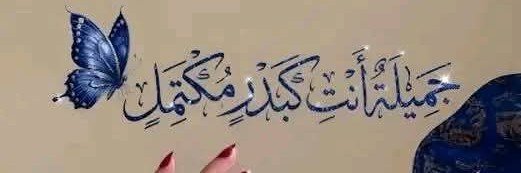 جَمِيلَةٌ أَنْتِ كَبَدْرٍ مُكْتَمِلٍ